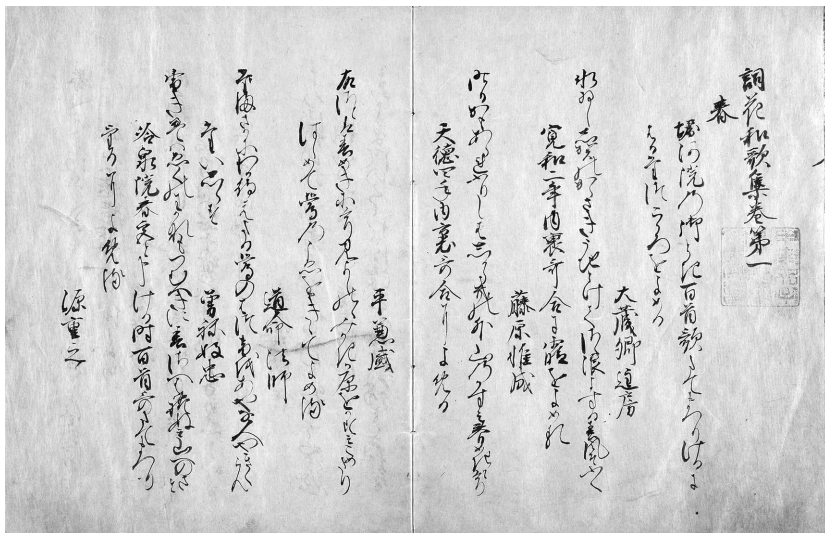 詞花和歌集巻第一
春
堀河院の御時百首歌たてまつりけるに
はるたつこゝろをよめる
大蔵卿匡房
氷ゐし志賀のからさきうちとけてさゝ浪よする春風そ吹
寛和二年内裏哥合に霞をよめる
藤原惟成
昨日かもあられふりしはしからきの外山のかすみ春めきにけり
天徳四年内裏哥合によめる
平兼盛
故郷は春めきにけりみよしのゝみかきか原をかすみこめたり
はしめて鶯のこゑをきゝてよめる
道命法師
たまさかにわか待えたる鶯のはつねをあやな人やきくらん
題しらす
曽祢好忠
雪きえはゑくのわかなもつむへきに春さへはれぬみ山への里
冷泉院春宮と申ける時百首哥たてまつり
けるによめる
源重之